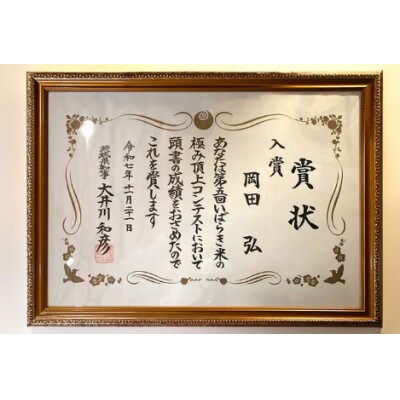 賞状
入賞
岡田 弘
あなたは第五回いばらき米の
極み頂上コンテストにおいて
頭書の成績をおさめたので
これを賞します
令和七年十一月二十一日
茨城県知事 大井川 和彦